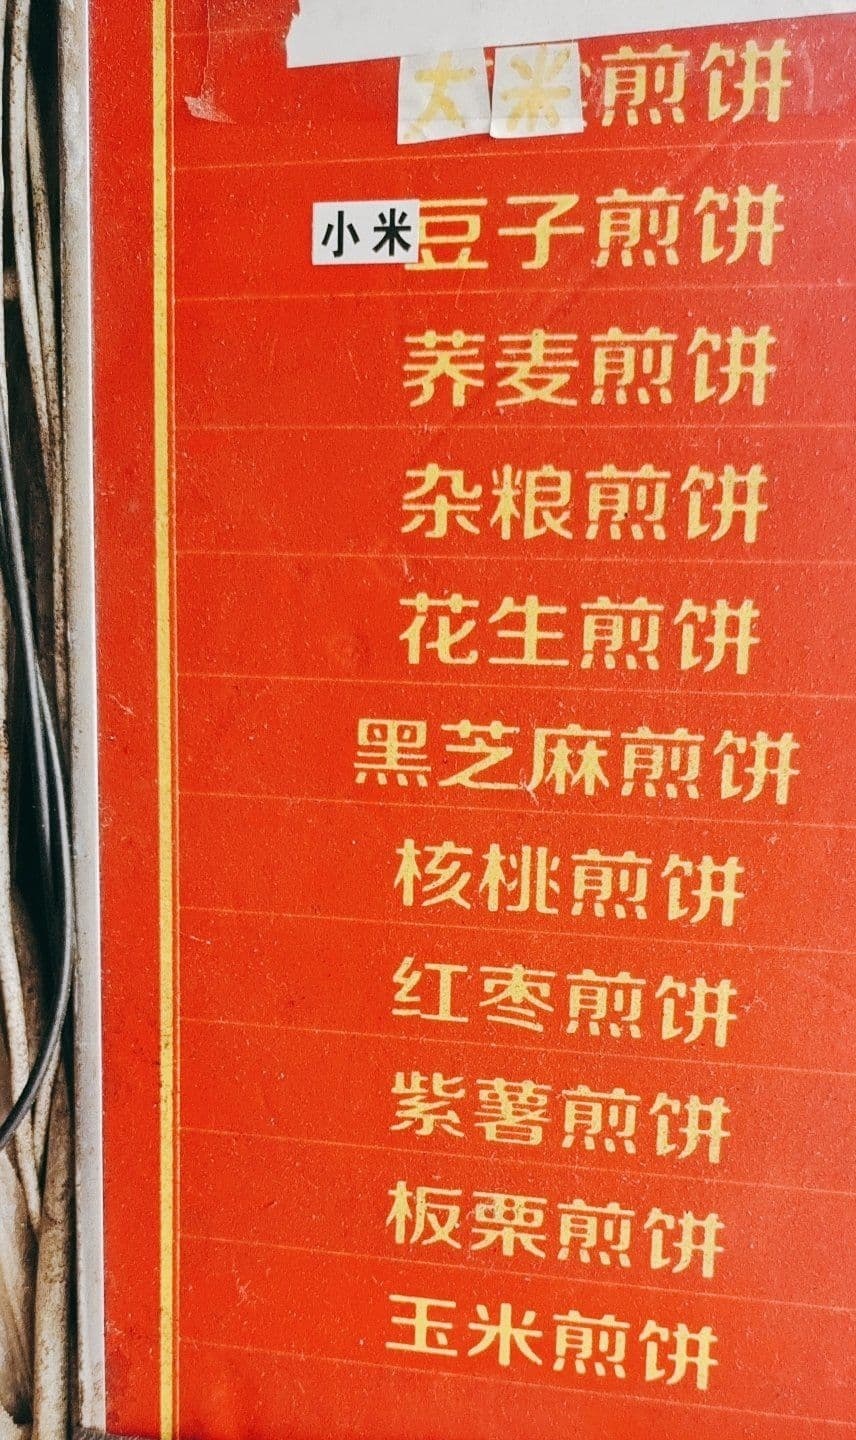 大米煎饼
小米豆子煎饼
荞麦煎饼
杂粮煎饼
花生煎饼
黑芝麻煎饼
核桃煎饼
红枣煎饼
紫薯煎饼
板栗煎饼
玉米煎饼